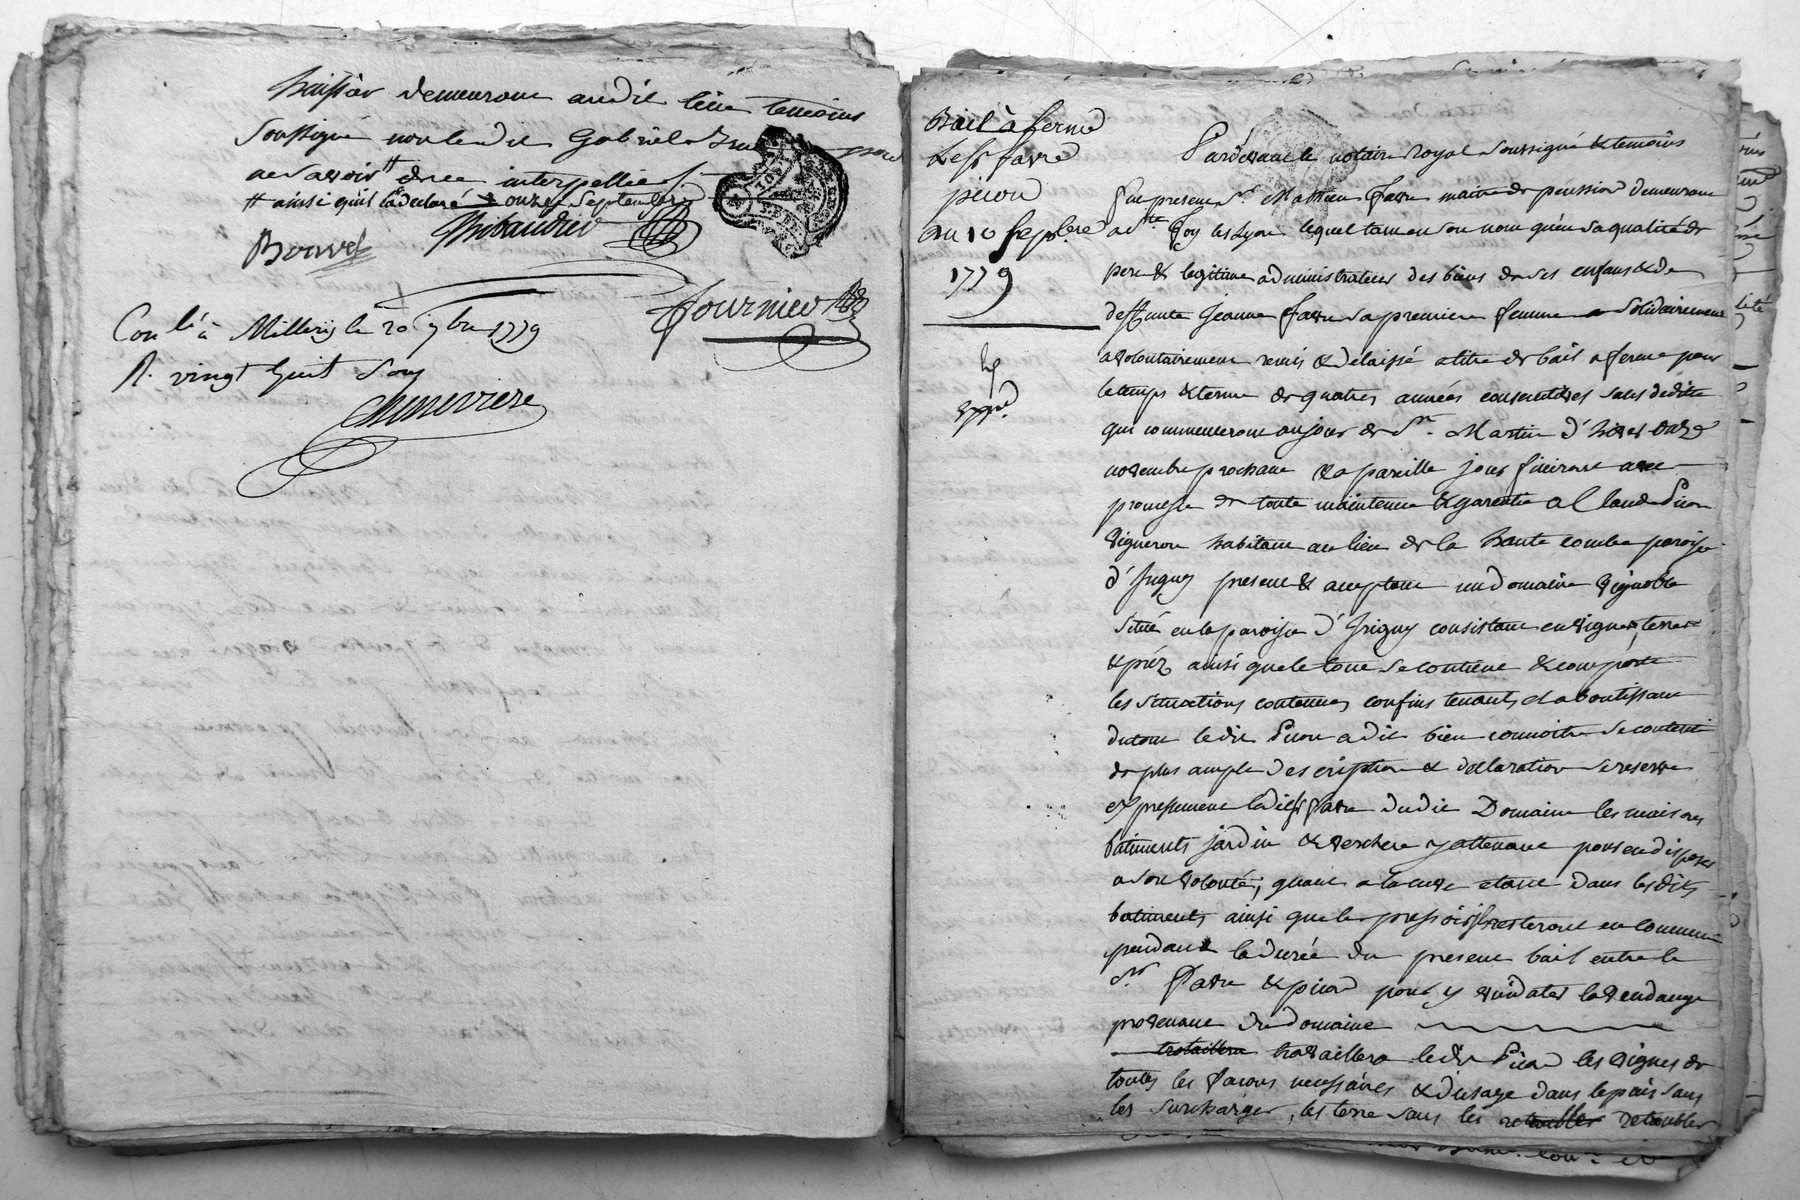 huissier demeurant audit lieu temoins
soussigné non ledit Gabriel
ne savoir # de ce interpellé
# ainsi qu'il l'a declaré onze Septembre
Thibaudier
Bouvet
Fournier
Con lé à Millery le 20 7bre 1779
R. vingt huit Sous
Chenevriere
Bail à ferme
Le Sr favre
picon
Du 10 Sepbre
1779
Exppé.
Pardevant le notaire Royal Soussigné & temoins
fut present Sr Mathieu favre maitre de penssion demeurant
a Ste foy les Lyon lequel tant en son nom qu'en sa qualité de
pere & legitime administrateur des biens de ses enfans & de
deffunte Jeanne favre sa premiere femme Solidairement
a volontairement remis & delaissé a titre de bail a ferme pour
le temps & terme de quatres années consecutives sans deditte
qui commenceront au jour de St. Martin d'hiver onze
novembre prochain & a pareille jour finiront avec
promesse de toute maintenue & garentie a Claude Picon
Vigneron habitant au lieu de la haute combe paroisse
d'Irigny present & acceptant un domaine vignoble
situé en la paroisse d'Irigny consistant en vignes, terres
& préz ainsi que le tout se contient & comporte
les situations contenues confins tenants et aboutissant
du tout ledit Picon a dit bien connoitre se contenté
de plus ample description & declaration se reserve
expressement ledit Sr favre dudit Domaine les maisons
batiments jardin & verchere y attenant pour en disposer
a son volonté; quant a la cuve etant dans lesdits
batiments ainsi que le pressoir ils resteront en commun
pendant la durée du present bail entre le
Sr. Favre & picon pour y vuidater la vendange
provenant du domaine
travaillera travaillera ledit Picon les vignes de
toutes les facons necessaires & d'usage dans le païs sans
les surcharger, les terre sans les retoubler retoubler